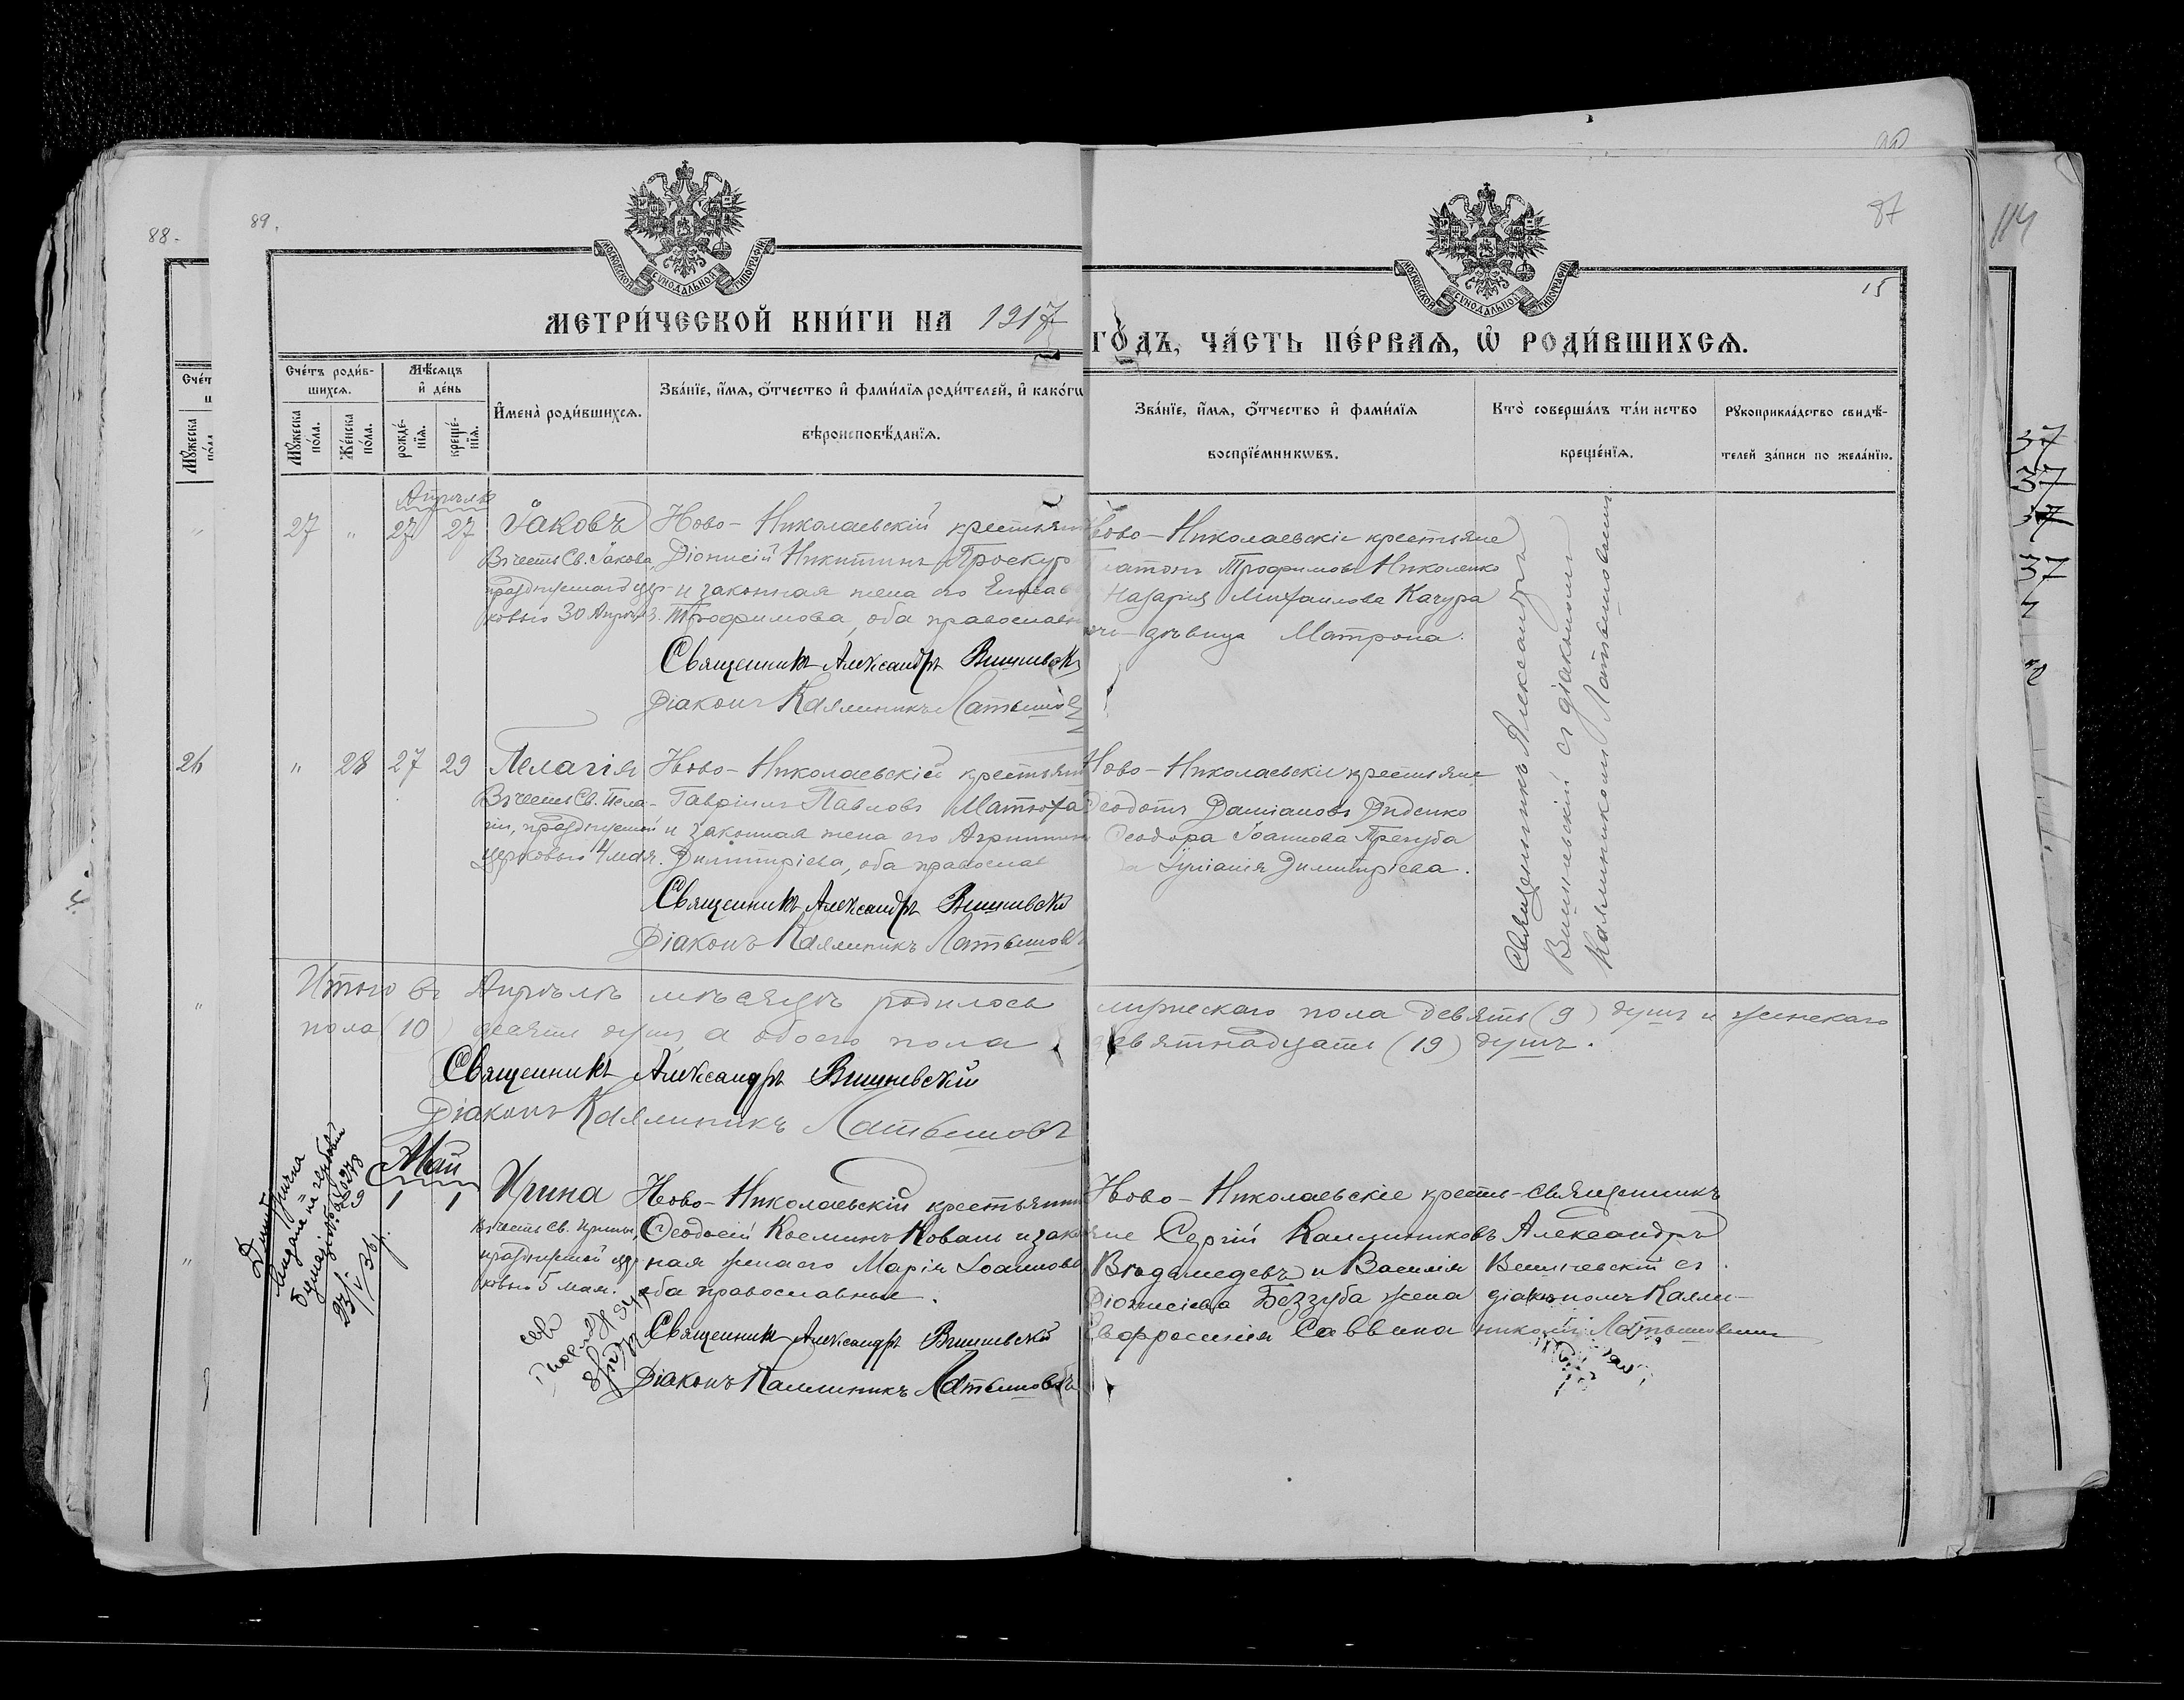 88.
89.
87
15
114
МОСКОВСКОЙ СѴНОДАЛЬНОЙ ТИПОГРАФІИ
МОСКОВСКОЙ СѴНОДАЛЬНОЙ ТИПОГРАФІИ
МЕТРИ́ЧЕСКОЙ КНИ́ГИ НА 1917
ГО́ДЪ, ЧА́СТЬ ПЕ́РВАѦ, Ѡ҆ РОДИ́ВШИХСѦ.
Сче́тъ роди́в-
шихся.
Мѣ́сяцъ
и҆ де́нь
Мꙋ́жеска
по́ла.
Же́нска
по́ла.
рожде́-
нїѧ.
креще́-
нїѧ.
И҆мена̀ роди́вшихсѧ.
Зва́нїе, и҆́мѧ, ѻ҆́тчество и҆ фами́лїѧ роди́телей, и҆ како́гѡ
вѣроисповѣ́данїѧ.
Зва́нїе, и҆́мѧ, ѻ҆́тчество и҆ фами́лїѧ
воспрїе́мникѡвъ.
Кто̀ соверша́лъ та́инство
креще́нїѧ.
Рꙋкоприкла́дство свидѣ́-
телей за́писи по жела́нїю.
Апрѣль
27 " 27 27 Іаковъ
Въ честь Св. Іакова,
ковью 30 Апрѣля.
Ново-Николаевскій крестьянин
Діонисій Никитинъ Проскур
и законная жена его Елисав
Трофимова, оба православн
Священникъ Александръ Вишневскі
Діаконъ Каллиникъ Латышов
Ново-Николаевскіе крестьяне
Платонъ Трофимовъ Николенко
Назарія Михаилова Качура
дѣвица Матрона.
Священникъ Александръ
Вишневскій съ діакономъ
Каллиникомъ Латышовымъ
26
" 28 27 29 Пелагія
Въ честь Св. Пела-
гіи, празднуемой
церковью 4 мая.
Ново-Николаевскій крестьянин
Гавріилъ Павловъ Матюха
и законная жена его Агриппин
Димитріева, оба православ
Священникъ Александръ Вишневскі
Діаконъ Каллиникъ Латышовъ
Ново-Николаевскіе крестьяне
Ѳеодотъ Даміановъ Диденко
Ѳеодора Іоаннова
Іуліанія Димитріева.
Итого въ Апрѣлѣ мѣсяцѣ родилось мужескаго пола девять (9) душъ и женскаго
пола (10) десять душъ, а обоего пола девятнадцать (19) душъ.
Священникъ Александръ Вишневскій
Діаконъ Каллиникъ Латышовъ
Май
1 1 Ирина
Въ честь Св. Ирины,
празднуемой цер
ковью 5 мая.
Ново-Николаевскій крестьянин
Ѳеодосій Косминъ Коваль и закон
ная жена его Марія Іоаннова
оба православные.
Священникъ Александръ Вишневскі
Діаконъ Каллиникъ Латышовъ
Ново-Николаевскіе кресть-
яне Сергій Каллиниковъ
и Василія
Діонисіева Беззуба жена
Евфросинія Саввина
Священникъ
Александръ
Вишневскій съ
діакономъ Калли-
никомъ Латышовымъ
37
37
37
37